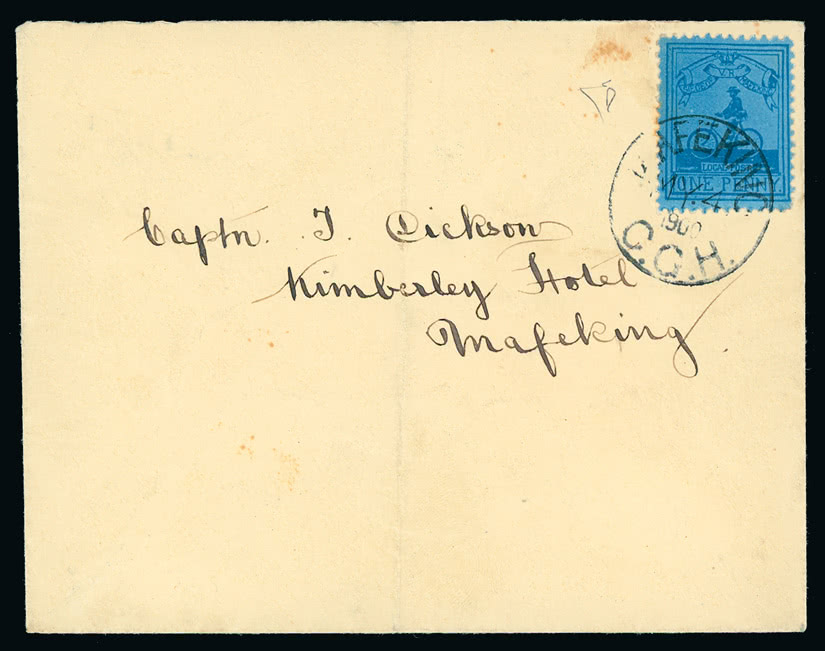 V.R
LOCAL POST
ONE PENNY
MAFEKING
MY 4
1900
C.G.H.
Captn. J. Dickson
Kimberley Hotel
Mafeking